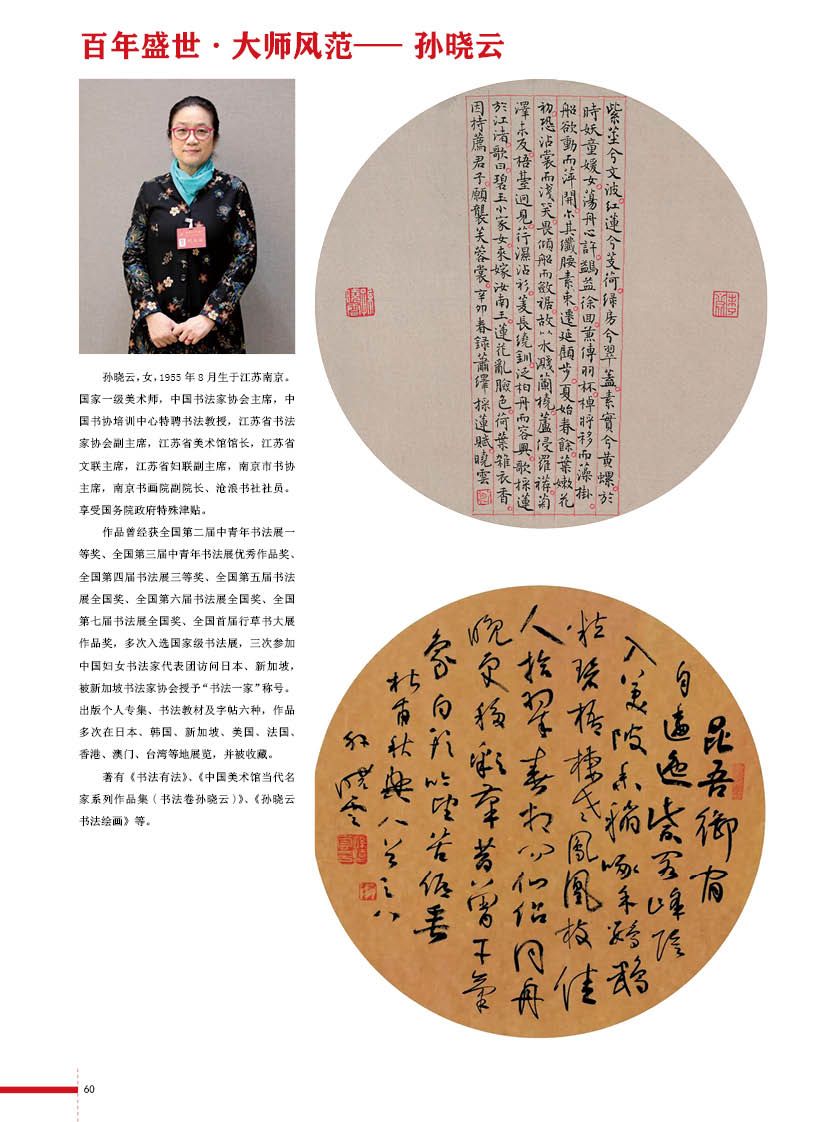 百年盛世·大师风范—— 孙晓云
孙晓云，女，1955 年 8 月生于江苏南京。
国家一级美术师，中国书法家协会主席，中
国书协培训中心特聘书法教授，江苏省书法
家协会副主席，江苏省美术馆馆长，江苏省
文联主席，江苏省妇联副主席，南京市书协
主席，南京书画院副院长、沧浪书社社员。
享受国务院政府特殊津贴。
作品曾经获全国第二届中青年书法展一
等奖、全国第三届中青年书法展优秀作品奖、
全国第四届书法展三等奖、全国第五届书法
展全国奖、全国第六届书法展全国奖、全国
第七届书法展全国奖、全国首届行草书大展
作品奖，多次入选国家级书法展，三次参加
中国妇女书法家代表团访问日本、新加坡，
被新加坡书法家协会授予“书法一家”称号。
出版个人专集、书法教材及字帖六种，作品
多次在日本、韩国、新加坡、美国、法国、
香港、澳门、台湾等地展览，并被收藏。
著有《书法有法》、《中国美术馆当代名
家系列作品集（书法卷孙晓云）》、《孙晓云
书法绘画》等。
紫莖兮文波紅蓮兮芰荷綠房兮翠蓋素實兮黃螺於
時妖童媛女蕩舟心許鷁益徐回兼傳羽杯棹將移而藻掛
船欲動而萍開尔其纖腰素束遷延顧步夏始春餘葉嫩花
初恐沾裳而淺笑畏傾船而斂裾故以水濺蘭橈蘆侵羅䙁菊
澤未反梧臺迥見荇濕沾衫菱長繞釧泛柏舟而容與歌採蓮
於江渚歌曰碧玉小家女來嫁汝南王蓮花亂臉色荷葉雜衣香
因持薦君子願襲芙蓉裳辛卯春錄蕭繹採蓮賦曉雲
昆吾御宿
自逶迤紫閣峰陰
入渼陂香稻啄余鸚鵡
粒碧梧棲老鳳凰枝佳
人拾翠春相问仙侶同舟
晚更移彩筆昔曾干氣
象白頭吟望苦低垂
杜甫秋興八首之八
孫曉雲
60